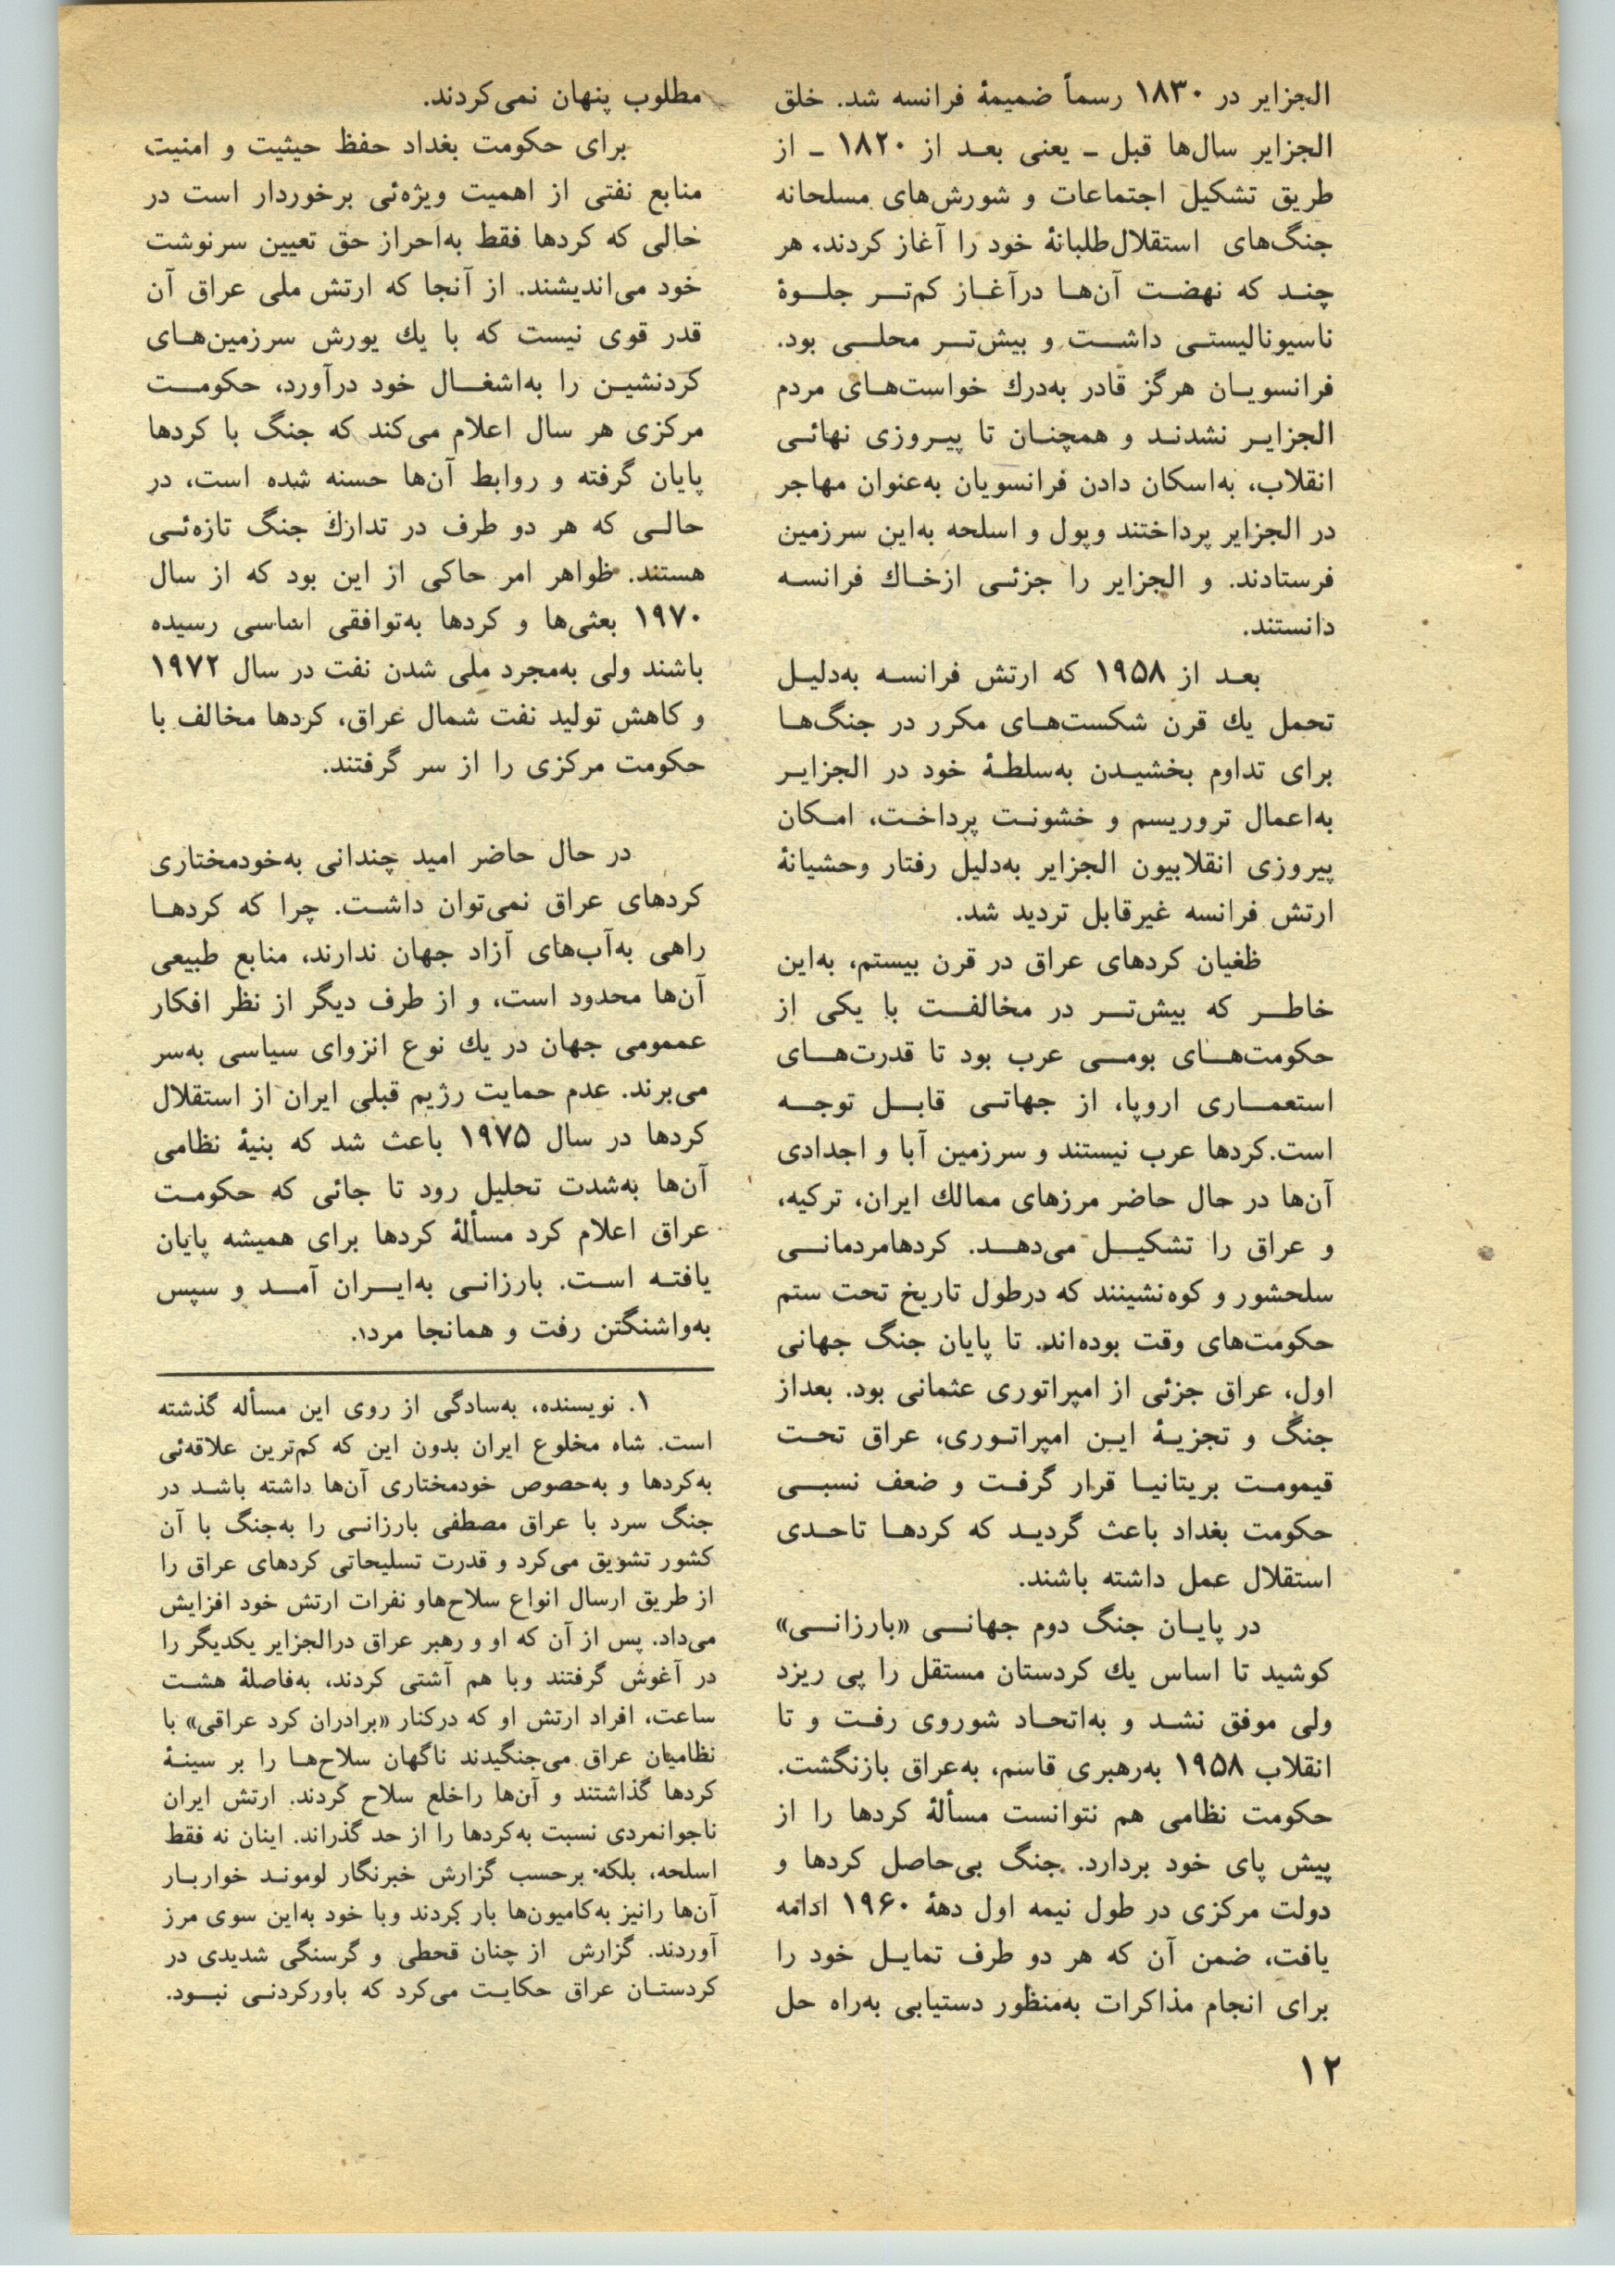 الجزایر در ۱۸۳۰ رسماً ضمیمهٔ فرانسه شد. خلق
الجزایر سال‌ها قبل ـ یعنی بعـد از ۱۸۲۰ ـ از
طریق تشکیل اجتماعات و شورش‌های مسلحانه
جنگ‌های استقلال‌طلبانهٔ خود را آغاز کردند، هر
چنـد که نهضـت آن‌هـا درآغـاز کم‌تـر جلـوهٔ
ناسیونالیستـی داشـت و بیش‌تـر محلـی بود.
فرانسویـان هرگز قادر به‌درك خواست‌هـای مردم
الجزایـر نشدنـد و همچنـان تا پیـروزی نهائـی
انقلاب، به‌اسکان دادن فرانسویان به‌عنوان مهاجر
در الجزایر پرداختند وپول و اسلحه به‌این سرزمین
فرستادند. و الجزایر را جزئـی ازخـاك فرانسـه
دانستند.
بعـد از ۱۹۵۸ که ارتش فرانسـه به‌دلیـل
تحمل یك قرن شکست‌هـای مکرر در جنگ‌هـا
برای تداوم بخشیـدن به‌سلطـهٔ خود در الجزایـر
به‌اعمال تروریسم و خشونـت پرداخـت، امـکان
پیروزی انقلابیون الجزایر به‌دلیل رفتار وحشیانهٔ
ارتش فرانسه غیرقابل تردید شد.
طغیان کردهای عراق در قرن بیستم، به‌این
خاطـر که بیش‌تـر در مخالفـت با یکی از
حکومت‌هـای بومـی عرب بود تا قدرت‌هـای
استعمـاری اروپا، از جهاتـی قابـل توجـه
است.کردها عرب نیستند و سرزمین آبا و اجدادی
آن‌ها در حال حاضر مرزهای ممالك ایران، ترکیه،
و عراق را تشکیـل می‌دهـد. کردهامردمانـی
سلحشور و کوه‌نشینند که درطول تاریخ تحت ستم
حکومت‌های وقت بوده‌اند. تا پایان جنگ جهانی
اول، عراق جزئی از امپراتوری عثمانی بود. بعداز
جنگ و تجزیـهٔ ایـن امپراتـوری، عراق تحـت
قیمومـت بریتانیـا قرار گرفـت و ضعف نسبـی
حکومت بغداد باعث گردیـد که کردهـا تاحـدی
استقلال عمل داشته باشند.
در پایـان جنگ دوم جهانـی «بارزانـی»
کوشید تا اساس یك کردستان مستقل را پی ریزد
ولی موفق نشـد و به‌اتحـاد شوروی رفـت و تا
انقلاب ۱۹۵۸ به‌رهبری قاسم، به‌عراق بازنگشت.
حکومت نظامی هم نتوانست مسألهٔ کردها را از
پیش پای خود بردارد. جنگ بی‌حاصل کردها و
دولت مرکزی در طول نیمه اول دههٔ ۱۹۶۰ ادامه
یافت، ضمن آن که هر دو طرف تمایـل خود را
برای انجام مذاکرات به‌منظور دستیابی به‌راه حل
مطلوب پنهان نمی‌کردند.
برای حکومت بغداد حفظ حیثیت و امنیت
منابع نفتی از اهمیت ویژه‌ئی برخوردار است در
حالی که کردها فقط به‌احراز حق تعیین سرنوشت
خود می‌اندیشند. از آنجا که ارتش ملی عراق آن
قدر قوی نیست که با یك یورش سرزمین‌هـای
کردنشیـن را به‌اشغـال خود درآورد، حکومـت
مرکزی هر سال اعلام می‌کند که جنگ با کردها
پایان گرفته و روابط آن‌ها حسنه شده است، در
حالـی که هر دو طرف در تدارك جنگ تازه‌ئـی
هستند. ظواهر امر حاکی از این بود که از سال
۱۹۷۰ بعثی‌ها و کردها به‌توافقی اساسی رسیده
باشند ولی به‌مجرد ملی شدن نفت در سال ۱۹۷۲
و کاهش تولید نفت شمال عراق، کردها مخالف با
حکومت مرکزی را از سر گرفتند.
در حال حاضر امید چندانی به‌خودمختاری
کردهای عراق نمی‌توان داشـت. چرا که کردهـا
راهی به‌آب‌های آزاد جهان ندارند، منابع طبیعی
آن‌ها محدود است، و از طرف دیگر از نظر افکار
عممومی جهان در یك نوع انزوای سیاسی به‌سر
می‌برند. عدم حمایت رژیم قبلی ایران از استقلال
کردها در سال ۱۹۷۵ باعث شد که بنیهٔ نظامی
آن‌ها به‌شدت تحلیل رود تا جائی که حکومـت
عراق اعلام کرد مسألهٔ کردها برای همیشه پایان
یافتـه اسـت. بارزانـی به‌ایـران آمـد و سپس
به‌واشنگتن رفت و همانجا مرد۱.
۱. نویسنده، به‌سادگی از روی این مسأله گذشته
است. شاه مخلوع ایران بدون این که کم‌ترین علاقه‌ئی
به‌کردها و به‌حصوص خودمختاری آن‌ها داشته باشـد در
جنگ سرد با عراق مصطفی بارزانـی را به‌جنگ با آن
کشور تشویق می‌کرد و قدرت تسلیحاتی کردهای عراق را
از طریق ارسال انواع سلاح‌هاو نفرات ارتش خود افزایش
می‌داد. پس از آن که او و رهبر عراق درالجزایر یکدیگر را
در آغوش گرفتند وبا هم آشتی کردند، به‌فاصلهٔ هشـت
ساعت، افراد ارتش او که درکنار «برادران کرد عراقی» با
نظامیان عراق می‌جنگیدند ناگهان سلاح‌هـا را بر سینـهٔ
کردها گذاشتند و آن‌ها راخلع سلاح کردند. ارتش ایران
ناجوانمردی نسبت به‌کردها را از حد گذراند. اینان نه فقط
اسلحه، بلکه برحسب گزارش خبرنگار لومونـد خواربـار
آن‌ها رانیز به‌کامیون‌ها بار کردند وبا خود به‌این سوی مرز
آوردند. گزارش از چنان قحطی و گرسنگی شدیدی در
کردستـان عراق حکایـت می‌کرد که باورکردنـی نبـود.
۱۲